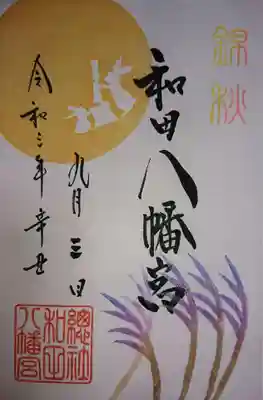 錦秋
和田八幡宮
九月三日
令和三年辛丑
總社
和田
八幡宮